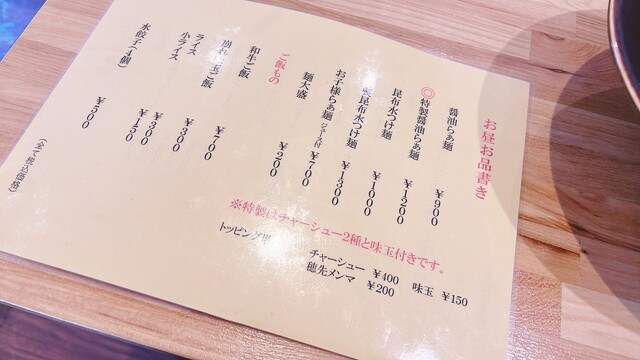 お昼お品書き
醤油らぁ麺 ¥900
◎特製醤油らぁ麺 ¥1200
昆布水つけ麺 ¥1000
昆布水つけ麺 ¥1300
お子様らぁ麺 ジュース付 ¥700
麺大盛 ¥200
ご飯もの
和牛ご飯 ¥700
崩れ玉ご飯 ¥300
ライス ¥300
小ライス ¥150
水餃子(4個) ¥500
(全て税込価格)
※特製はチャーシュー2種と味玉付きです。
トッピング
チャーシュー ¥400 味玉 ¥150
穂先メンマ ¥200